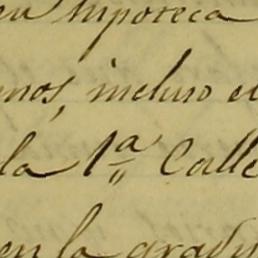 en hipoteca
nos, incluso e
la 1ª Calle
en la gradu